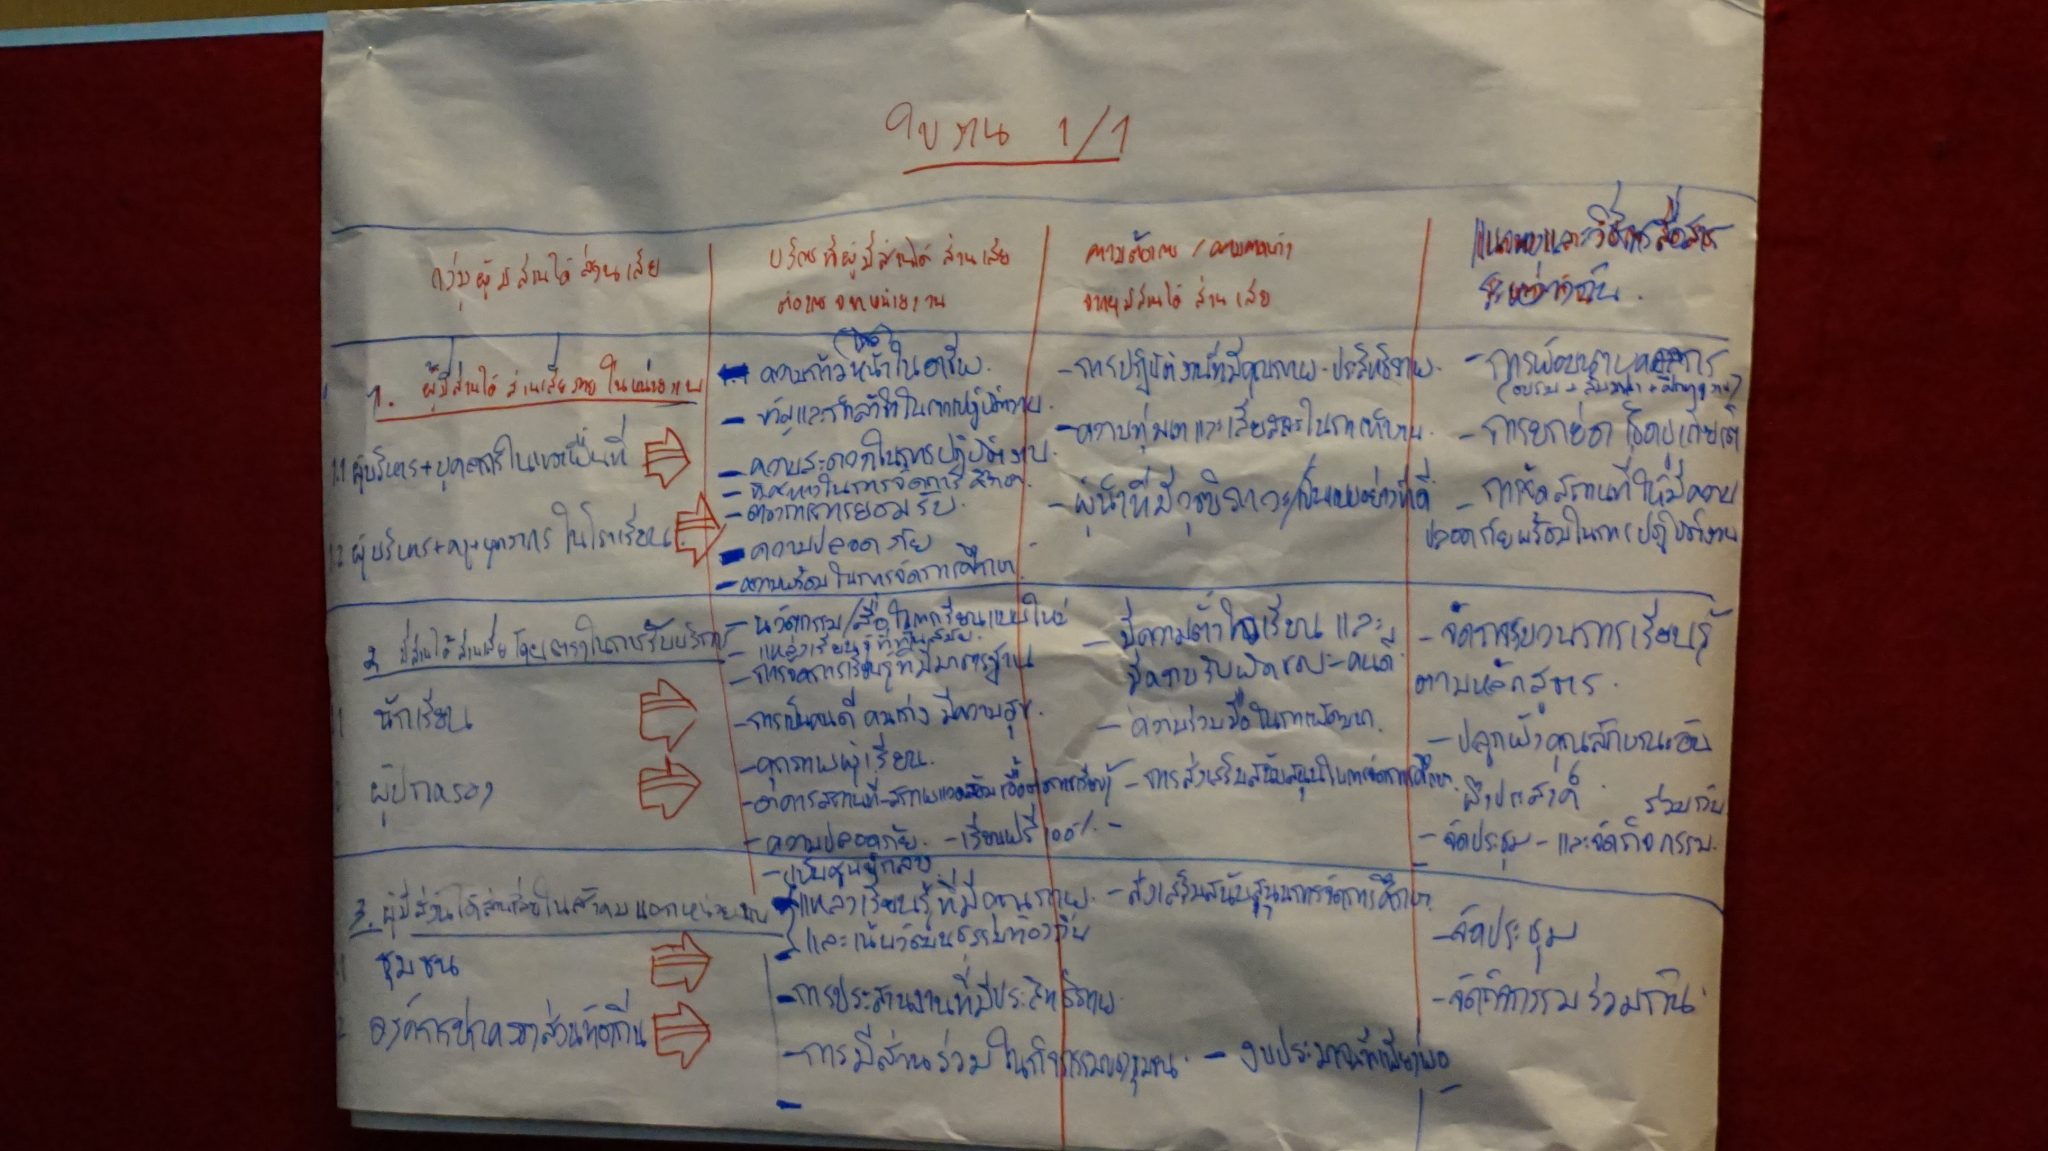 ใบงาน 1/1
กลุ่มผู้มีส่วนได้ส่วนเสีย
บริการที่ผู้มีส่วนได้ส่วนเสีย
ต้องการจากหน่วยงาน
ความต้องการ/ความคาดหวัง
จากผู้มีส่วนได้ส่วนเสีย
แนวทางและวิธีการสื่อสาร
ระหว่างกัน
1. ผู้มีส่วนได้ส่วนเสียภายในหน่วยงาน
1.1 ผู้บริหาร+บุคลากรในเขตพื้นที่
1.2 ผู้บริหาร+ครู+บุคลากรในโรงเรียน
- ความก้าวหน้าในอาชีพ
- ขวัญและกำลังใจในการปฏิบัติงาน
- ความสะดวกในการปฏิบัติงาน
- ทิศทางในการจัดการศึกษา
- การยอมรับ
- ความปลอดภัย
- ความพร้อมในการจัดการศึกษา
- การปฏิบัติงานที่มีคุณภาพ-ประสิทธิภาพ
- ความทุ่มเทและเสียสละในการทำงาน
- ผู้นำที่มีวุฒิภาวะ/เป็นแบบอย่างที่ดี
- การพัฒนาบุคลากร
(อบรม+สัมมนา+ศึกษาดูงาน)
- การยกย่อง เชิดชูเกียรติ
- การจัดสถานที่ให้มีความ
ปลอดภัยพร้อมในการปฏิบัติงาน
2. มีส่วนได้ส่วนเสียโดยตรงในการรับบริการ
นักเรียน
ผู้ปกครอง
- นวัตกรรม/สื่อในการเรียนแบบใหม่
- แหล่งเรียนรู้ที่ทันสมัย
- การจัดการเรียนรู้ที่มีมาตรฐาน
- การเป็นคนดี คนเก่ง มีความสุข
- คุณภาพผู้เรียน
- อาคารสถานที่-สภาพแวดล้อมเอื้อต่อการเรียนรู้
- ความปลอดภัย - เรียนฟรี 100%
- มีความตั้งใจเรียน และ
มีความรับผิดชอบ-คนดี
- ความร่วมมือในการพัฒนา
- การส่งเสริมสนับสนุนในการจัดการศึกษา
- จัดกระบวนการเรียนรู้
ตามหลักสูตร
- ปลูกฝังคุณลักษณะอัน
พึงประสงค์
- จัดประชุม - และจัดกิจกรรม
ร่วมกัน
3. ผู้มีส่วนได้ส่วนเสียในสังคมนอกหน่วยงาน
ชุมชน
องค์การปกครองส่วนท้องถิ่น
- เป็นศูนย์กลาง
แหล่งเรียนรู้ที่มีคุณภาพ
และเน้นวัฒนธรรมท้องถิ่น
- การประสานงานที่มีประสิทธิภาพ
- การมีส่วนร่วมในกิจกรรมของชุมชน
- ส่งเสริมสนับสนุนการจัดการศึกษา
- งบประมาณที่เพียงพอ
- จัดประชุม
- จัดกิจกรรมร่วมกัน